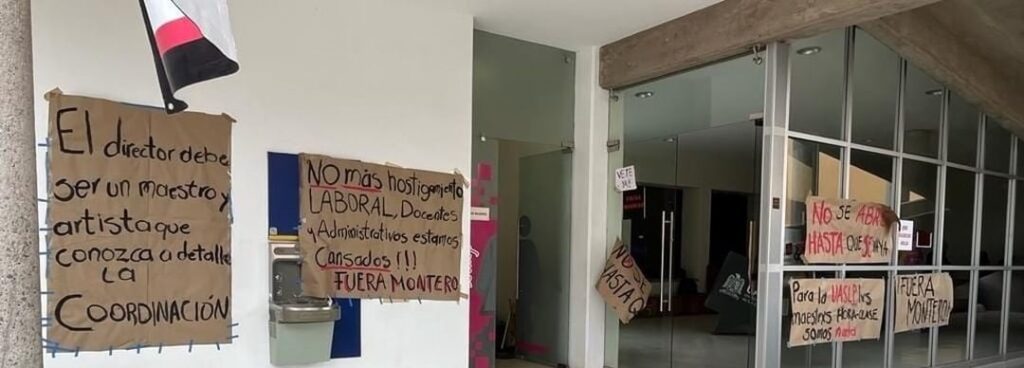 El director debe
ser un maestro y
artista que
conozca a detalle
LA
COORDINACIÓN
NO más hostigamiento
LABORAL, Docentes
y Administrativos estamos
Cansados!!!
FUERA MONTERO
VETE
YA!
NO SE
HASTA Q
NO SE ABRE
HASTA QUE SE VAYA
Para la UASLP lxs
maestrxs HORA-CLASE
somos nada
FUERA
MONTERO